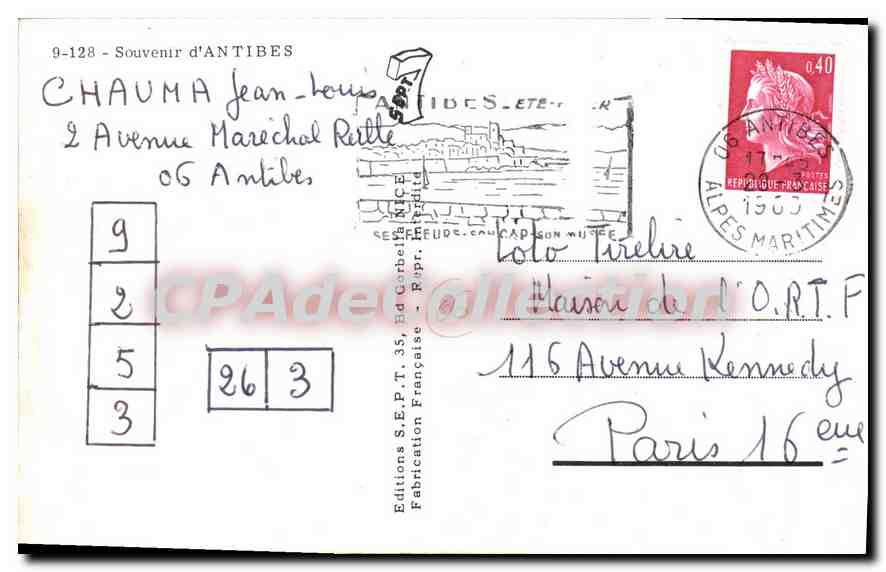 9-128 - Souvenir d'ANTIBES
CHAUMA Jean-Louis
2 Avenue Maréchal
06 Antibes
9
2
5
3
26 3
SEPT
ANTIBES - ETE -
SES FLEURS - SON CAP - SON MUSEE
Editions S.E.P.T. 35, Bd Gorbella NICE
Fabrication Française - Repr. Interdite
0,40
POSTES
REPUBLIQUE FRANÇAISE
06 ANTIBES
17
ALPES MARITIMES
Toto Tirelire
Maison de l'O.R.T.F
116 Avenue Kennedy
Paris 16 eme
CPAdeCollection